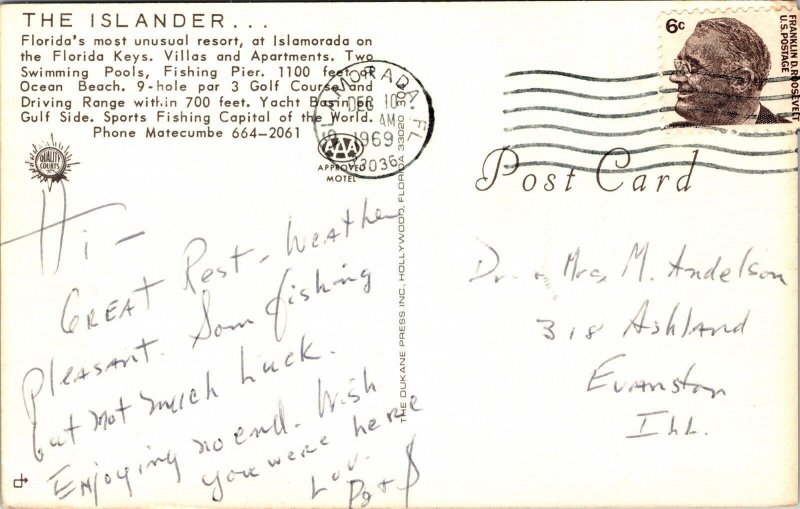 THE ISLANDER...
Florida's most unusual resort, at Islamorada on
the Florida Keys. Villas and Apartments. Two
Swimming Pools, Fishing Pier. 1100 feet of
Ocean Beach. 9-hole par 3 Golf Course and
Driving Range within 700 feet. Yacht Basin on
Gulf Side. Sports Fishing Capital of the World.
Phone Matecumbe 664-2061
QUALITY
COURTS
AAA
APPROVED
MOTEL
ISLAMORADA, FL
DEC 10
AM
1969
33036
6c
FRANKLIN D. ROOSEVELT
U.S. POSTAGE
Post Card
THE DUKANE PRESS INC., HOLLYWOOD, FLORIDA 33020
Hi -
Great Rest - Weather
Pleasant. Som fishing
but not much luck.
Enjoying no end. Wish
you were here
Lov.
Dr. + Mrs M. Andelson
318 Ashland
Evanston
Ill.